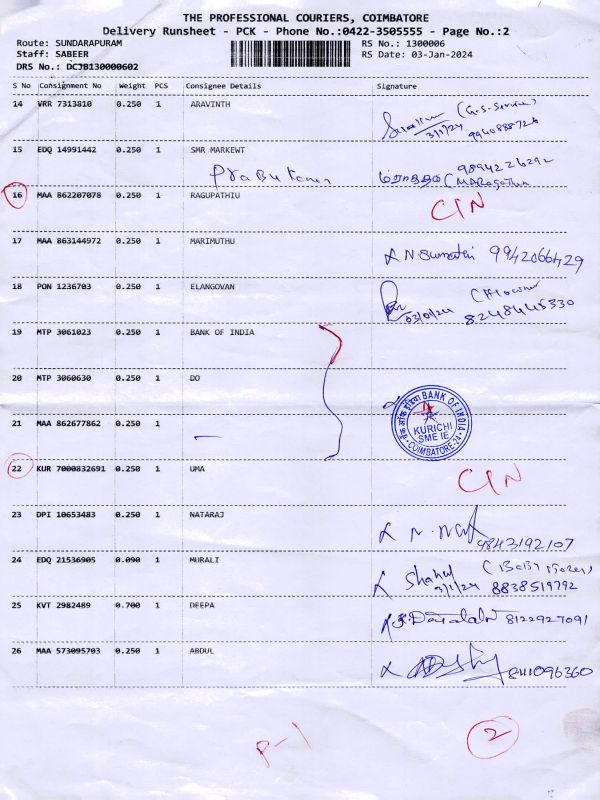 THE PROFESSIONAL COURIERS, COIMBATORE
Delivery Runsheet - PCK - Phone No.:0422-3505555 - Page No.:2
Route: SUNDARAPURAM RS No.: 1300006
Staff: SABEER RS Date: 03-Jan-2024
DRS No.: DCJB130000602
S No Consignment No Weight PCS Consignee Details Signature
14 VRR 7313810 0.250 1 ARAVINTH
3/1/24 9940888726
15 EDQ 14991442 0.250 1 SMR MARKEWT
Prabukumar
16 MAA 862207078 0.250 1 RAGUPATHIU CIN
17 MAA 863144972 0.250 1 MARIMUTHU N Sumathi 9942066429
18 PON 1236703 0.250 1 ELANGOVAN
03/01/24 8248445330
19 MTP 3061023 0.250 1 BANK OF INDIA
20 MTP 3060630 0.250 1 DO
BANK OF INDIA
KURICHI
SME IE
COIMBATORE-24
21 MAA 862677862 0.250 1
22 KUR 7000832691 0.250 1 UMA CIN
23 DPI 10653483 0.250 1 NATARAJ
9843192107
24 EDQ 21536905 0.090 1 MURALI
3/1/24 8838519792
25 KVT 2982489 0.700 1 DEEPA 8122927091
26 MAA 573095703 0.250 1 ABDUL 8111096360
P-1
2